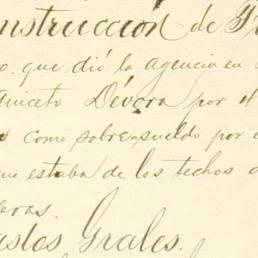 nstrucción de
o. que dió la agencia en
aniceto Dévora por
como sobre-sueldo por
ue estaba de los techos
eras.
astos Grales.